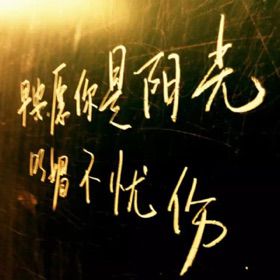 早安愿你是阳光
明媚不忧伤